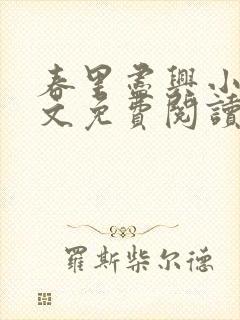 春里尽興小
文免費閱讀
羅斯柴尔德